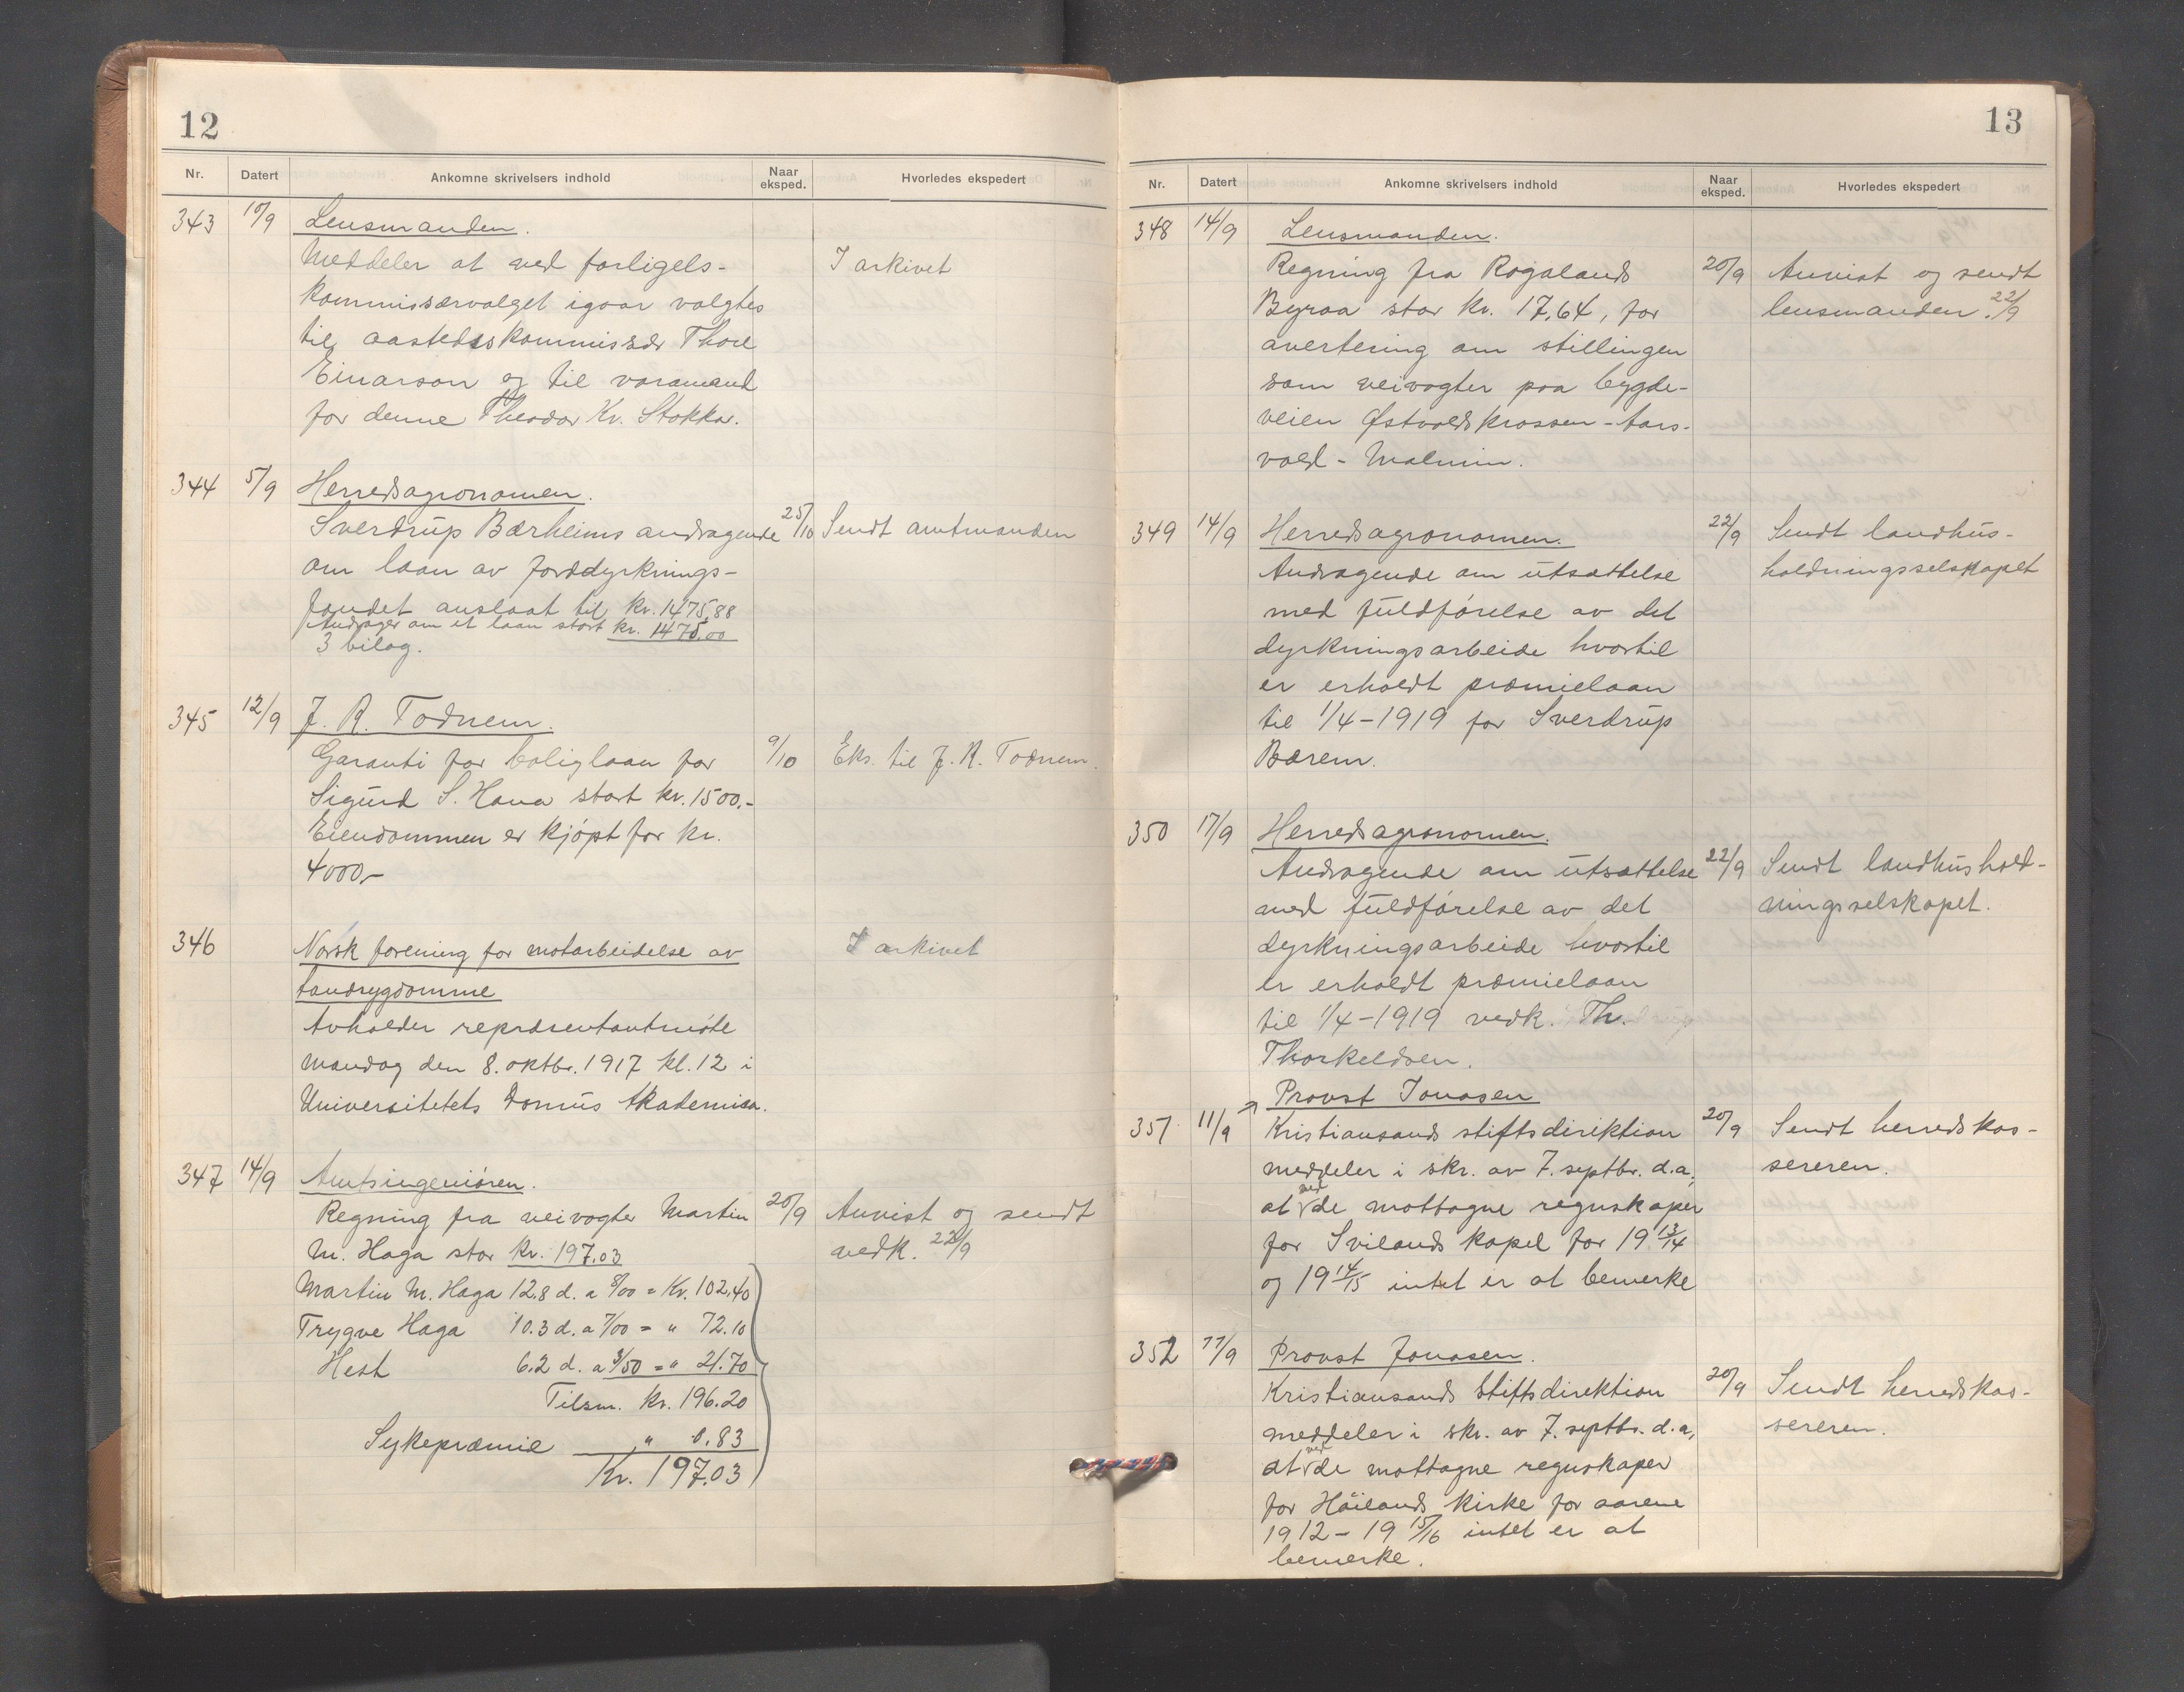 12
Nr. Datert Ankomne skrivelsers indhold Naar eksped. Hvorledes ekspedert
343 10/9 Lensmanden.
Meddeler at ved forligels- I arkivet
kommissærvalget igaar valgtes
til aastedskommissær Thore
Einarson og til varamand
for denne Theodor Kr. Stokka.
344 5/9 Herredsagronomen.
Sverdrup Bærheims andragende 25/10 Sendt amtmanden
om laan av jorddyrknings-
fondet anslaat til kr. 1475,88
Andrager om et laan stort kr. 1475,00
3 bilag.
345 12/9 J. R. Todnem.
Garanti for boliglaan for 9/10 Eks. til J. R. Todnem.
Sigurd S. Hana stort kr. 1500.-
Eiendommen er kjöpt for kr.
4000,-
346 Norsk forening for motarbeidelse av I arkivet
tandsygdomme
Avholder repræsentantmöte
Mandag den 8. oktbr. 1917 kl. 12 i
Universitetets Domus Akademica.
347 14/9 Amtsingeniören.
Regning fra veivogter Martin 20/9 Anvist og sendt
M. Haga stor kr. 197.03 vedk. 22/9
Martin M. Haga 12.8 d. a 8/00 = Kr. 102,40
Trygve Haga 10.3 d. a 7/00 = " 72.10
Hest 6.2 d. a 3/50 = " 21.70
Tilsm. kr. 196.20
Sykepræmie " 0.83
Kr. 197.03
13
Nr. Datert Ankomne skrivelsers indhold Naar eksped. Hvorledes ekspedert
348 14/9 Lensmanden.
Regning fra Rogalands 20/9 Anvist og sendt
Byraa stor kr. 17,64, for lensmanden. 22/9
avertering om stillingen
som veivogter paa bygde-
veien Østvoldskrossen - Aars-
vold - Malmin.
349 14/9 Herredsagronomen. 22/9 Sendt landhus-
Andragende om utsættelse holdningsselskapet
med fuldförelse av det
dyrkningsarbeide hvortil
er erholdt præmielaan
til 1/4 - 1919 for Sverdrup
Bærem.
350 17/9 Herredsagronomen.
Andragende om utsættelse 22/9 Sendt landhushold-
med fuldförelse av det ningsselskapet.
dyrkningsarbeide hvortil
er erholdt præmielaan
til 1/4 - 1919 vedk. Th.
Thorkeldsen.
Provst Jonasen
351 11/9 Kristiansands stiftsdirektion 20/9 Sendt herredskas-
meddeler i skr. av 7. septbr. d.a., sereren.
at ved de mottagne regnskaper
for Svilands kapel for 19 13/14
og 19 14/15 intet er at bemerke
352 17/9 Provst Jonasen.
Kristiansands Stiftsdirektion 20/9 Sendt herredskas-
meddeler i skr. av 7. septbr. d.a, sereren.
at ved de mottagne regnskaper
for Höilands kirke for aarene
1912 - 19 15/16 intet er at
bemerke.